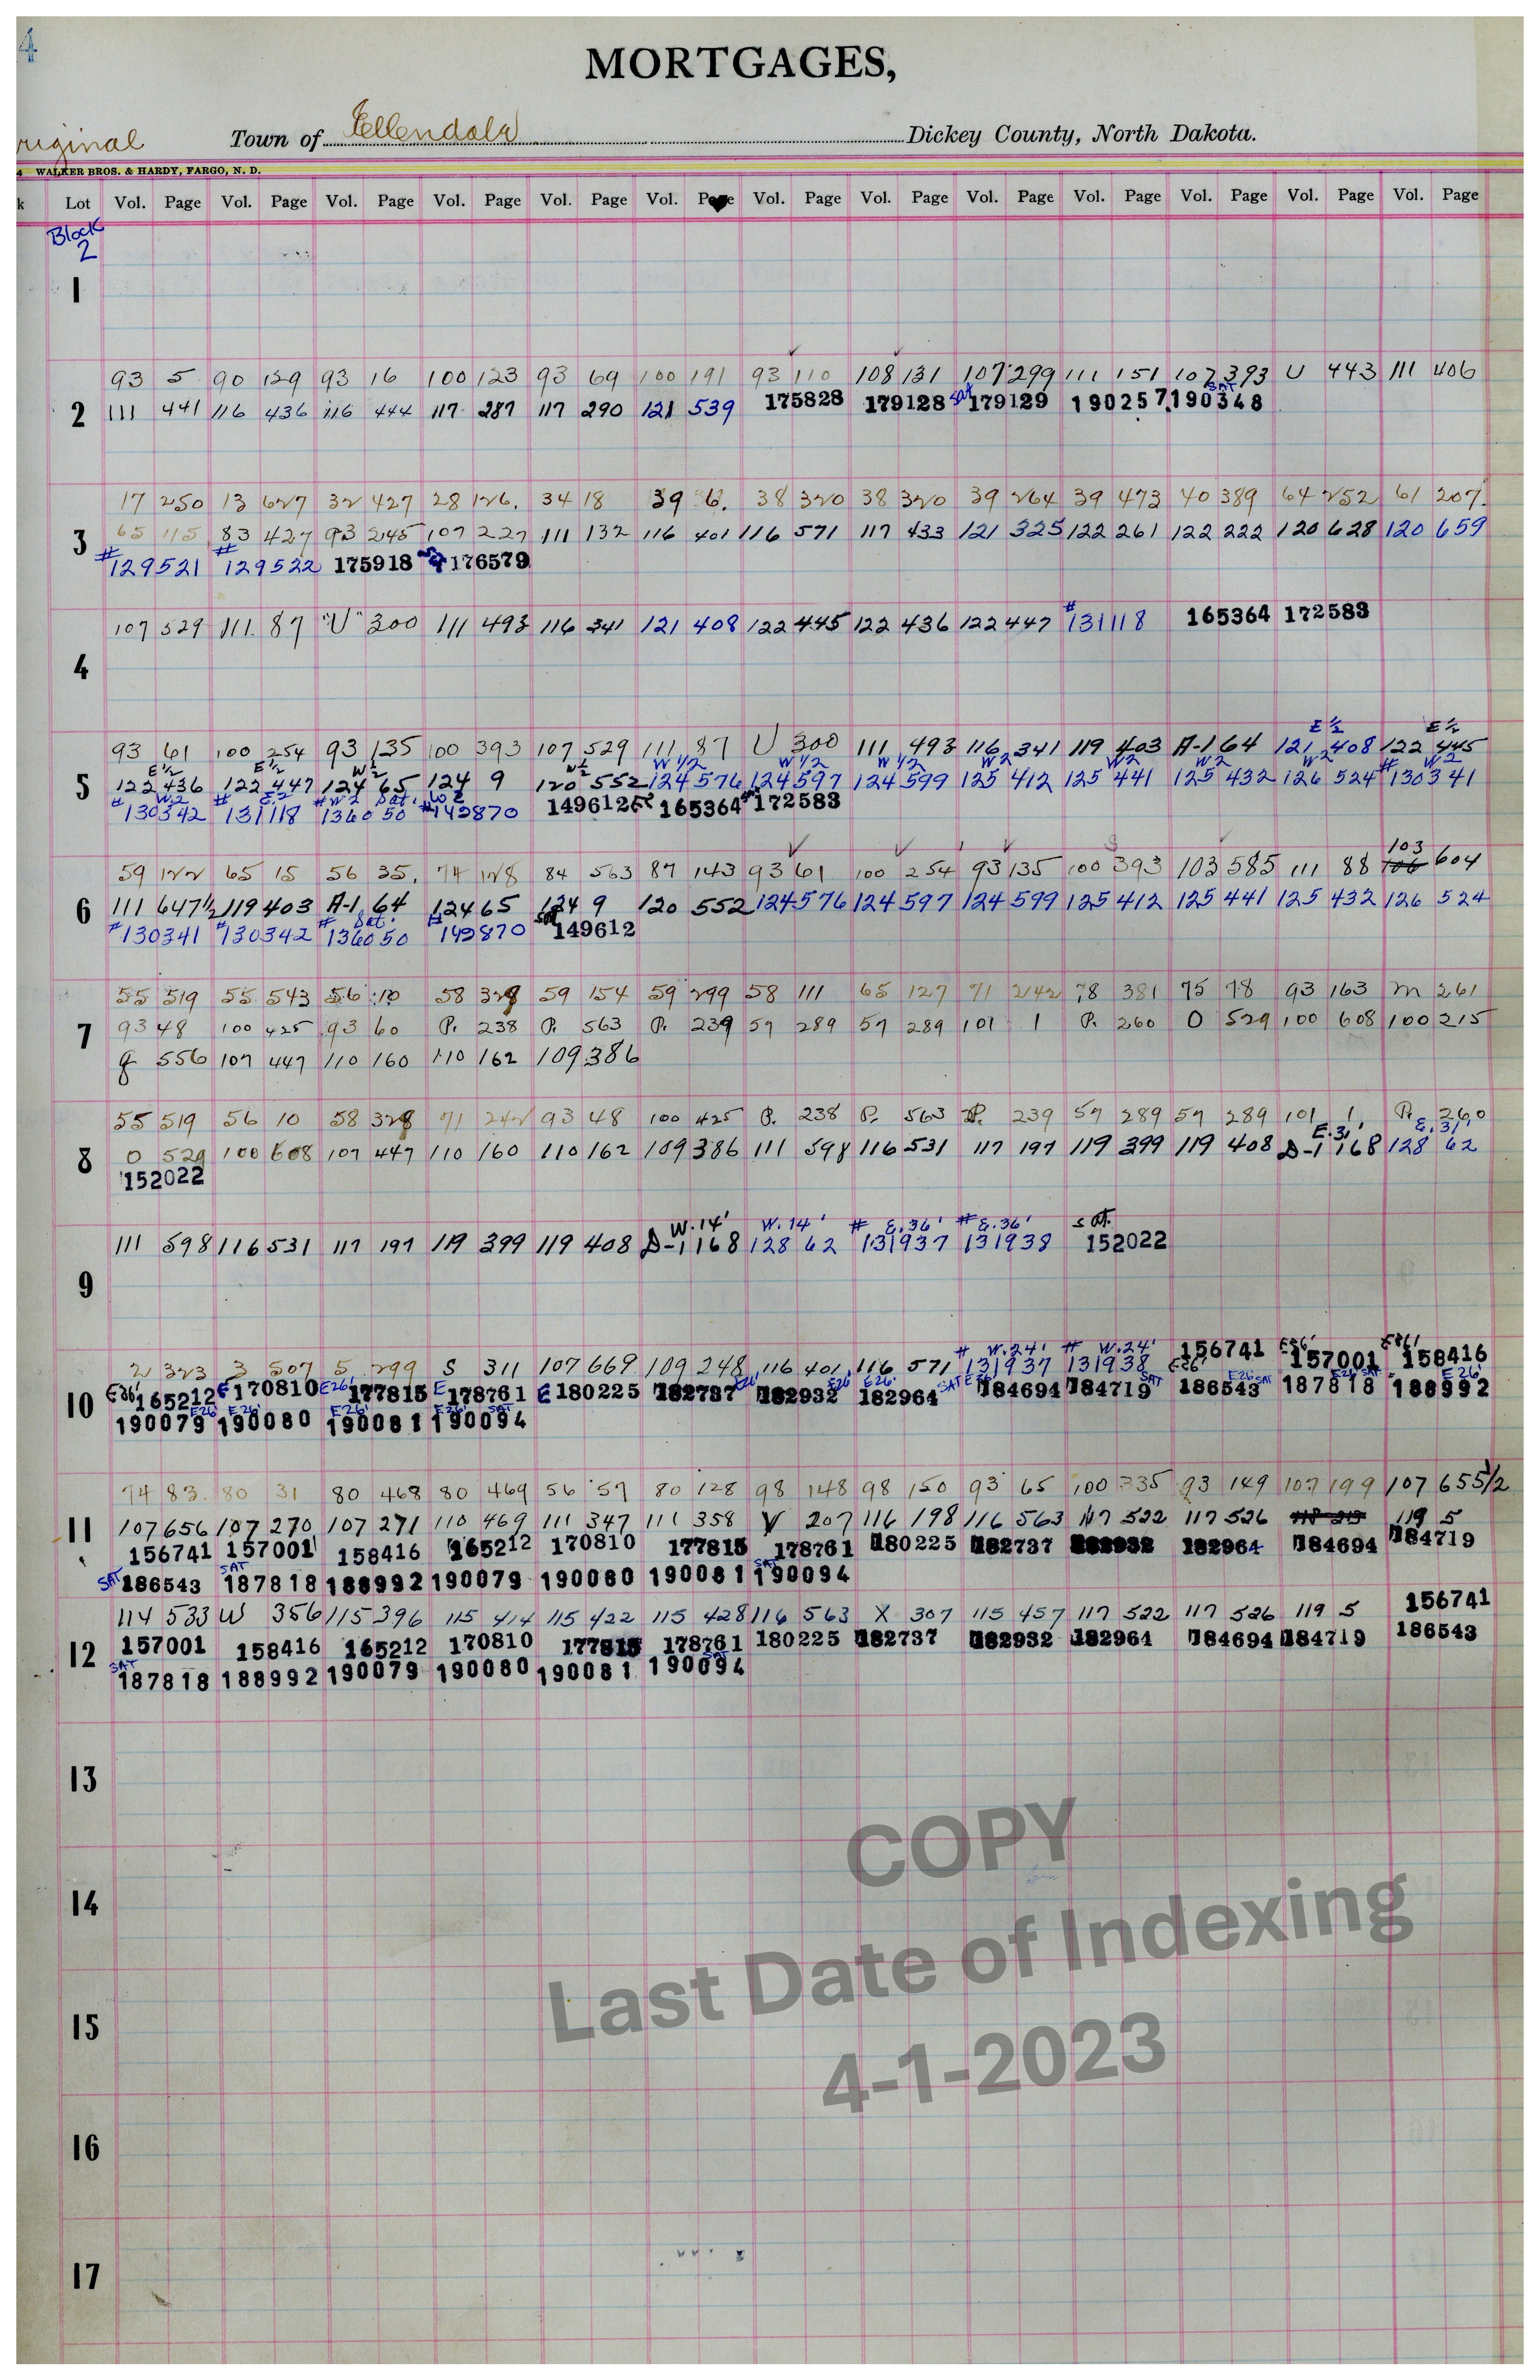 4
MORTGAGES,
riginal Town of Ellendale Dickey County, North Dakota.
4 WALKER BROS. & HARDY, FARGO, N. D.
k Lot Vol. Page Vol. Page Vol. Page Vol. Page Vol. Page Vol. Page Vol. Page Vol. Page Vol. Page Vol. Page Vol. Page Vol. Page Vol. Page
Block
2
1
93 5 90 129 93 16 100 123 93 69 100 191 93 110 108 131 107 299 111 151 107 393 U 443 111 406
SAT
2 111 441 116 436 116 444 117 287 117 290 121 539 175828 179128 Sat 179129 190257 190348
17 250 13 627 32 427 28 126. 34 18 39 6. 38 320 38 320 39 264 39 473 40 389 64 252 61 207.
3 65 115 83 427 93 245 107 227 111 132 116 401 116 571 117 433 121 325 122 261 122 222 120 628 120 659
# 129521 # 129522 175918 176579
107 529 111. 87 "U" 300 111 493 116 341 121 408 122 445 122 436 122 447 # 131118 165364 172583
4
E½ E½
93 61 100 254 93 135 100 393 107 529 111 87 U 300 111 493 116 341 119 403 A-1 64 121 408 122 445
E½ E½ W½ W½ W 1/2 W 1/2 W 1/2 W2 W2 W2 W2 # W2
5 122 436 122 447 124 65 124 9 120 552 124 576 124 597 124 599 125 412 125 441 125 432 126 524 130341
# W2 # E2 # W2 Sat. # W2
130342 131118 136050 142870 149612 165364 172583
103
59 122 65 15 56 35. 74 128 84 563 87 143 93 61 100 254 93 135 100 393 103 585 111 88 106 604
6 111 647½ 119 403 A-1 64 124 65 124 9 120 552 124 576 124 597 124 599 125 412 125 441 125 432 126 524
# 130341 # 130342 # Sat. 136050 # 142870 Sat 149612
55 519 55 543 56 10 58 328 59 154 59 299 58 111 65 127 71 242 78 381 75 78 93 163 M 261
7 93 48 100 425 93 60 P. 238 P. 563 P. 239 57 289 57 289 101 1 P. 260 O 529 100 608 100 215
556 107 447 110 160 110 162 109 386
55 519 56 10 58 328 71 242 93 48 100 425 P. 238 P. 563 P. 239 57 289 57 289 101 1 P. 260
E. 31' E. 31'
8 0 529 100 608 107 447 110 160 110 162 109 386 111 598 116 531 117 197 119 399 119 408 D-1 168 128 62
152022
W. 14' W. 14' # E. 36' # E. 36' sat.
111 598 116 531 117 197 119 399 119 408 D-1 168 128 62 131937 131938 152022
9
# W. 24' # W. 24' 156741 E26' 157001 E26' 158416
2 323 3 507 5 299 S 311 107 669 109 248 116 401 116 571 131937 131938 E26'
10 E26' 165212 E 170810 E26' 177815 E 178761 E 180225 182737 E26' 182932 E26' 182964 E26' SAT E26' 184694 184719 SAT 186543 E26' SAT 187818 E26' SAT 188992 E26'
190079 E26' 190080 E26' 190081 E26' 190094 E26' SAT
74 83. 80 31 80 468 80 469 56 57 80 128 98 148 98 150 93 65 100 335 93 149 107 199 107 655½
11 107 656 107 270 107 271 110 469 111 347 111 358 V 207 116 198 116 563 117 522 117 526 119 5
156741 157001 158416 165212 170810 177815 178761 180225 182737 182932 182964 184694 184719
SAT 186543 SAT 187818 188992 190079 190080 190081 SAT 190094
114 533 W 356 115 396 115 414 115 422 115 428 116 563 X 307 115 457 117 522 117 526 119 5 156741
12 157001 158416 165212 170810 177815 178761 180225 182737 182932 182964 184694 184719 186543
SAT 187818 188992 190079 190080 190081 190094 SAT
13
14
15
16
17
COPY
Last Date of Indexing
4-1-2023